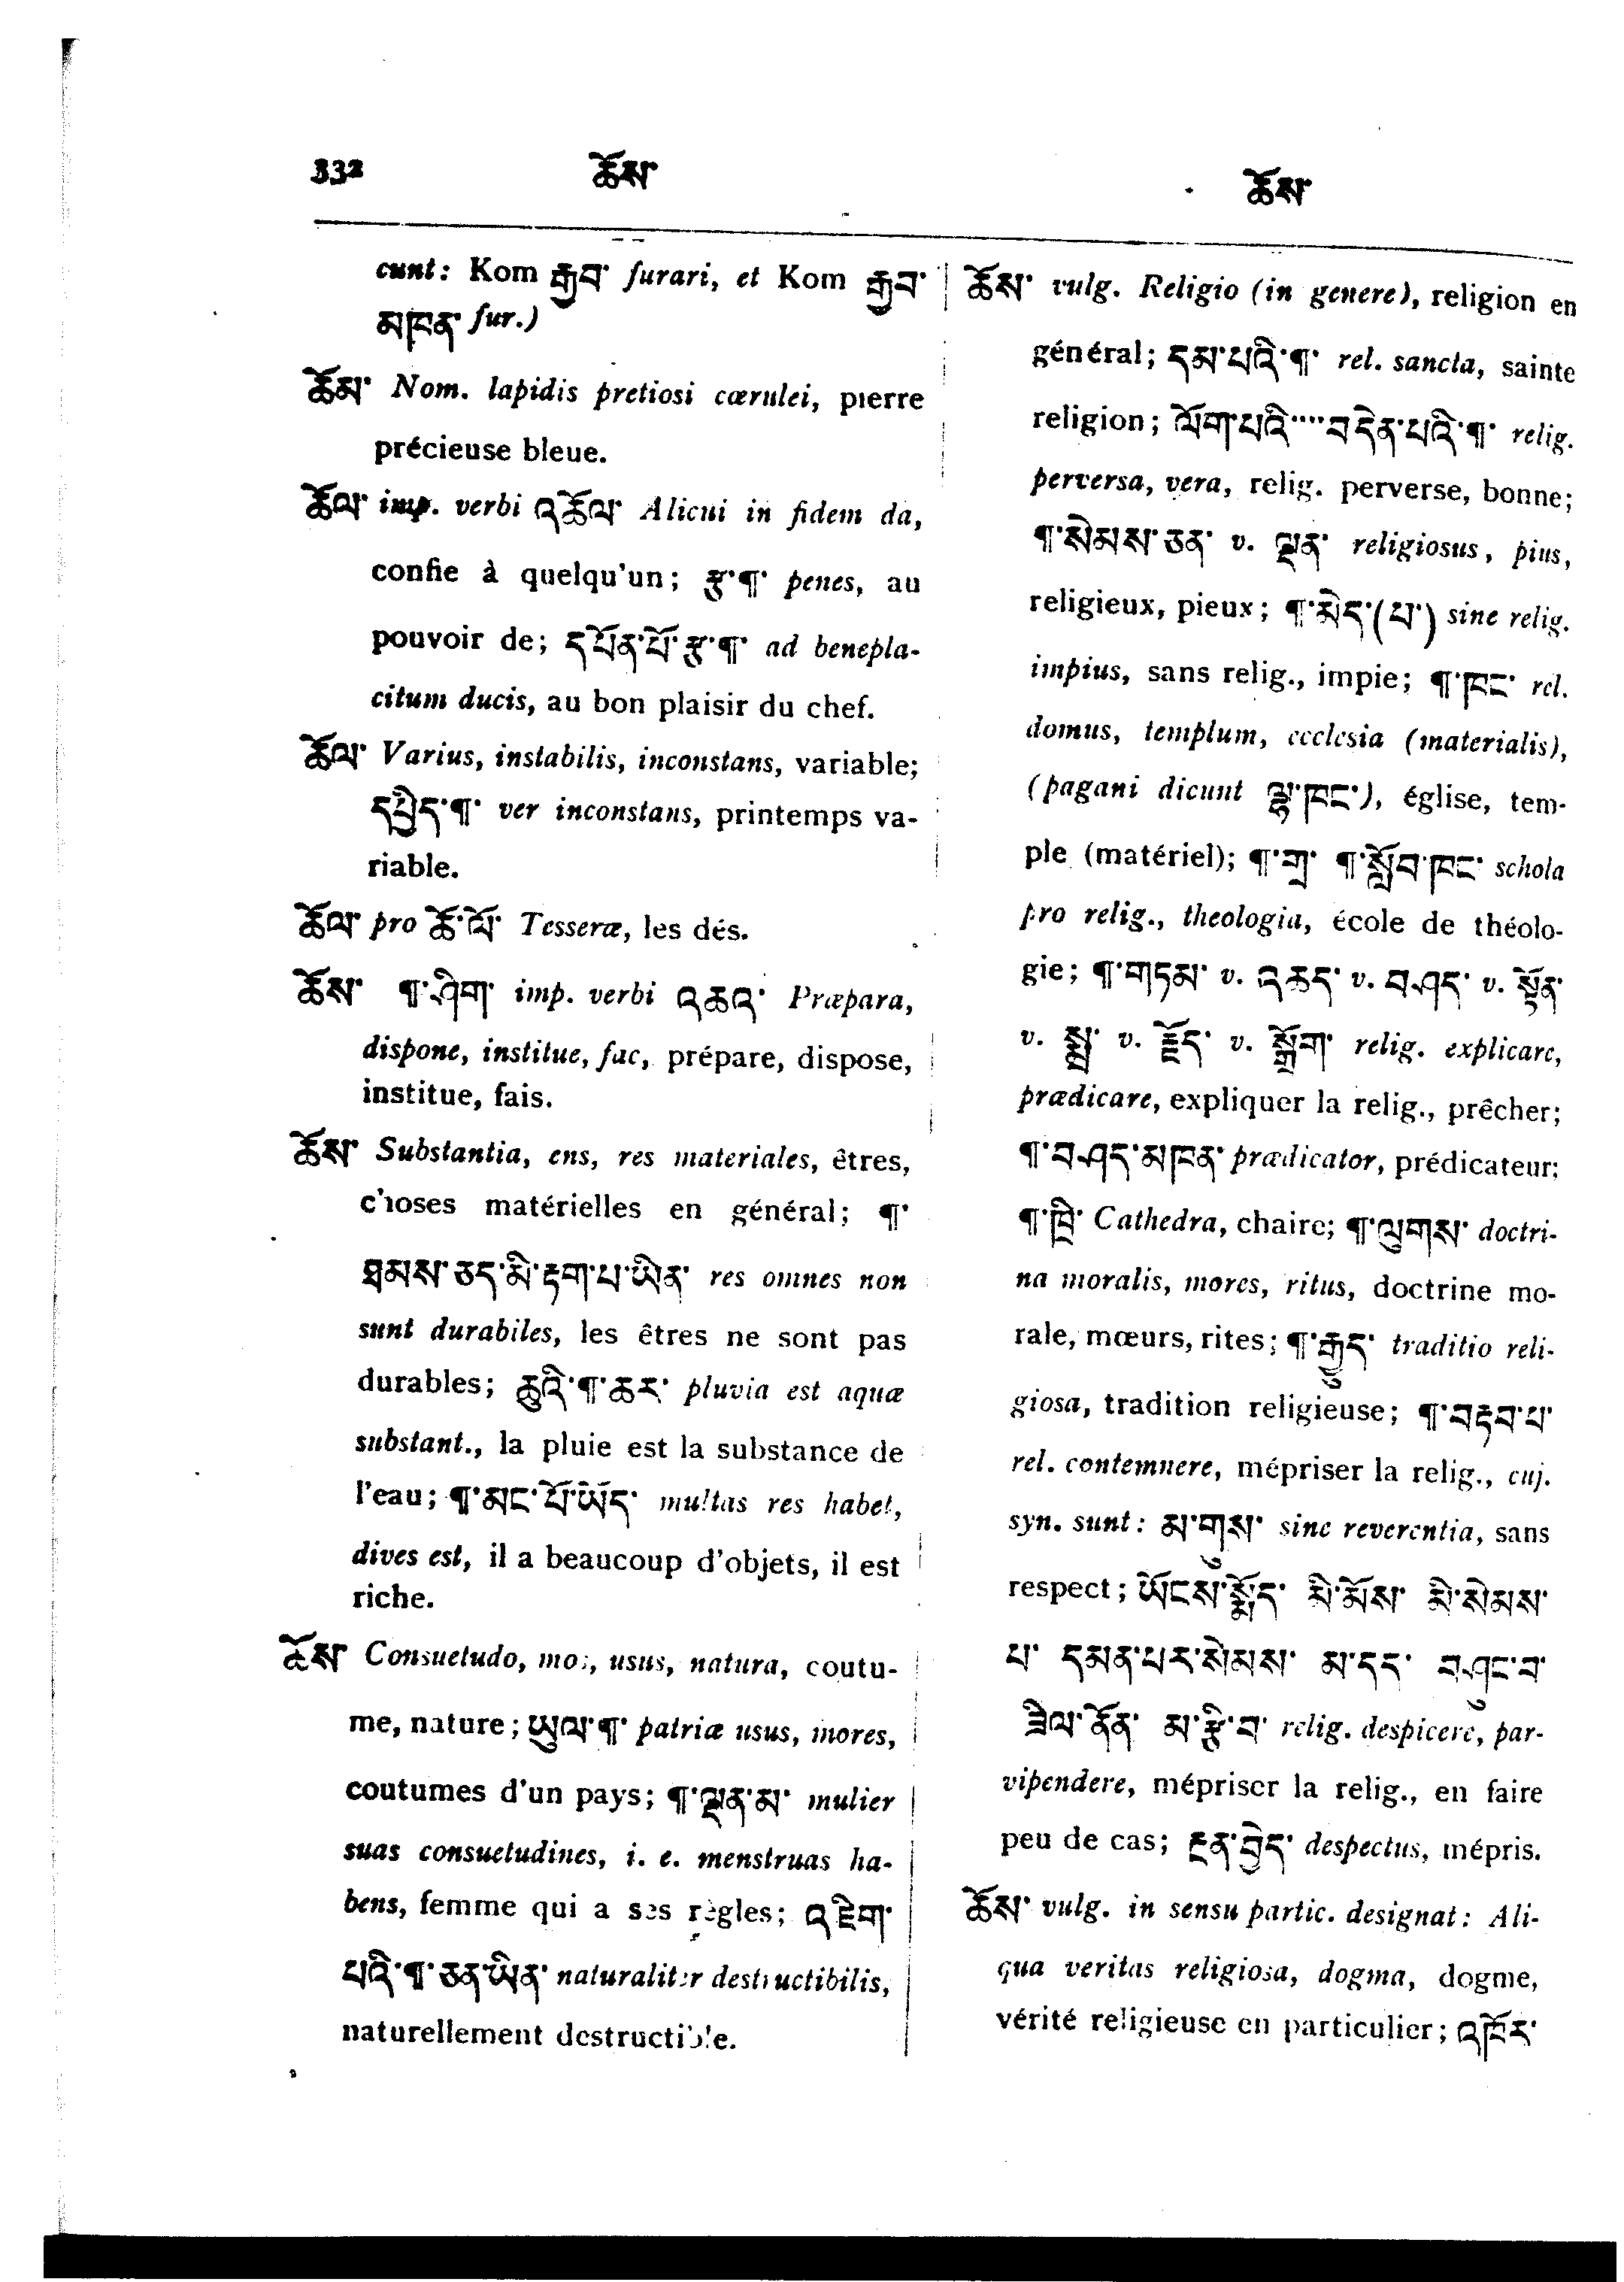 332 ཆོས་ ཆོས་
cunt: Kom རྒྱབ་ furari, et Kom རྒྱབ་
མཁན་ fur.)
ཆོམ་ Nom. lapidis pretiosi cærulei, pierre
précieuse bleue.
ཆོལ་ imp. verbi འཆོལ་ Alicui in fidem da,
confie à quelqu'un; རྩ་¶་ penes, au
pouvoir de; དཔོན་པོ་རྩ་¶་ ad benepla-
citum ducis, au bon plaisir du chef.
ཆོལ་ Varius, instabilis, inconstans, variable;
དཔྱིད་¶་ ver inconstans, printemps va-
riable.
ཆོལ་ pro ཆོ་ལོ་ Tesseræ, les dés.
ཆོས་ ¶་ཤིག་ imp. verbi འཆའ་ Præpara,
dispone, institue, fac, prépare, dispose,
institue, fais.
ཆོས་ Substantia, ens, res materiales, êtres,
choses matérielles en général; ¶་
ཐམས་ཅད་མི་རྟག་པ་ཡིན་ res omnes non
sunt durabiles, les êtres ne sont pas
durables; ཆུའི་¶་ཆར་ pluvia est aquæ
substant., la pluie est la substance de
l'eau; ¶་མང་པོ་ཡོད་ multas res habet,
dives est, il a beaucoup d'objets, il est
riche.
ཆོས་ Consuetudo, mos, usus, natura, coutu-
me, nature; ཡུལ་¶་ patriæ usus, mores,
coutumes d'un pays; ¶་ལྡན་མ་ mulier
suas consuetudines, i. e. menstruas ha-
bens, femme qui a ses règles; འཇིག་
པའི་¶་ཅན་ཡིན་ naturaliter destructibilis,
naturellement destructible.
ཆོས་ vulg. Religio (in genere), religion en
général; དམ་པའི་¶་ rel. sancta, sainte
religion; ལོག་པའི་་་་བདེན་པའི་¶་ relig.
perversa, vera, relig. perverse, bonne;
¶་སེམས་ཅན་ v. ལྡན་ religiosus, pius,
religieux, pieux; ¶་མེད་(པ་) sine relig.
impius, sans relig., impie; ¶་ཁང་ rel.
domus, templum, ecclesia (materialis),
(pagani dicunt ལྷ་ཁང་), église, tem-
ple (matériel); ¶་གྲྭ་ ¶་སློབ་ཁང་ schola
pro relig., theologia, école de théolo-
gie; ¶་གཏམ་ v. འཆད་ v. བཤད་ v. སྟོན་
v. སྨྲ་ v. རྗོད་ v. སྒྲོག་ relig. explicare,
prædicare, expliquer la relig., prêcher;
¶་བཤད་མཁན་ prædicator, prédicateur;
¶་ཁྲི་ Cathedra, chaire; ¶་ལུགས་ doctri-
na moralis, mores, ritus, doctrine mo-
rale, mœurs, rites; ¶་རྒྱུད་ traditio reli-
giosa, tradition religieuse; ¶་བརྟབ་པ་
rel. contemnere, mépriser la relig., cuj.
syn. sunt: མ་གུས་ sine reverentia, sans
respect; ཡོངས་སྨོད་ མི་མོས་ མི་སེམས་
པ་ དམན་པར་སེམས་ མ་དད་ བཤུང་བ་
ཟིལ་ནོན་ མ་རྩི་བ་ relig. despicere, par-
vipendere, mépriser la relig., en faire
peu de cas; རྔན་བྱེད་ despectus, mépris.
ཆོས་ vulg. in sensu partic. designat: Ali-
qua veritas religiosa, dogma, dogme,
vérité religieuse en particulier; འཁོར་